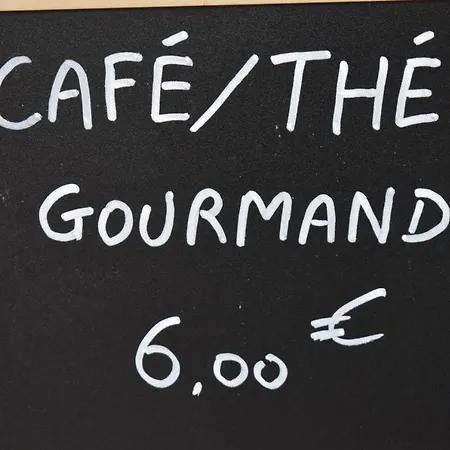 CAFÉ/THÉ
GOURMAND
6,00 €